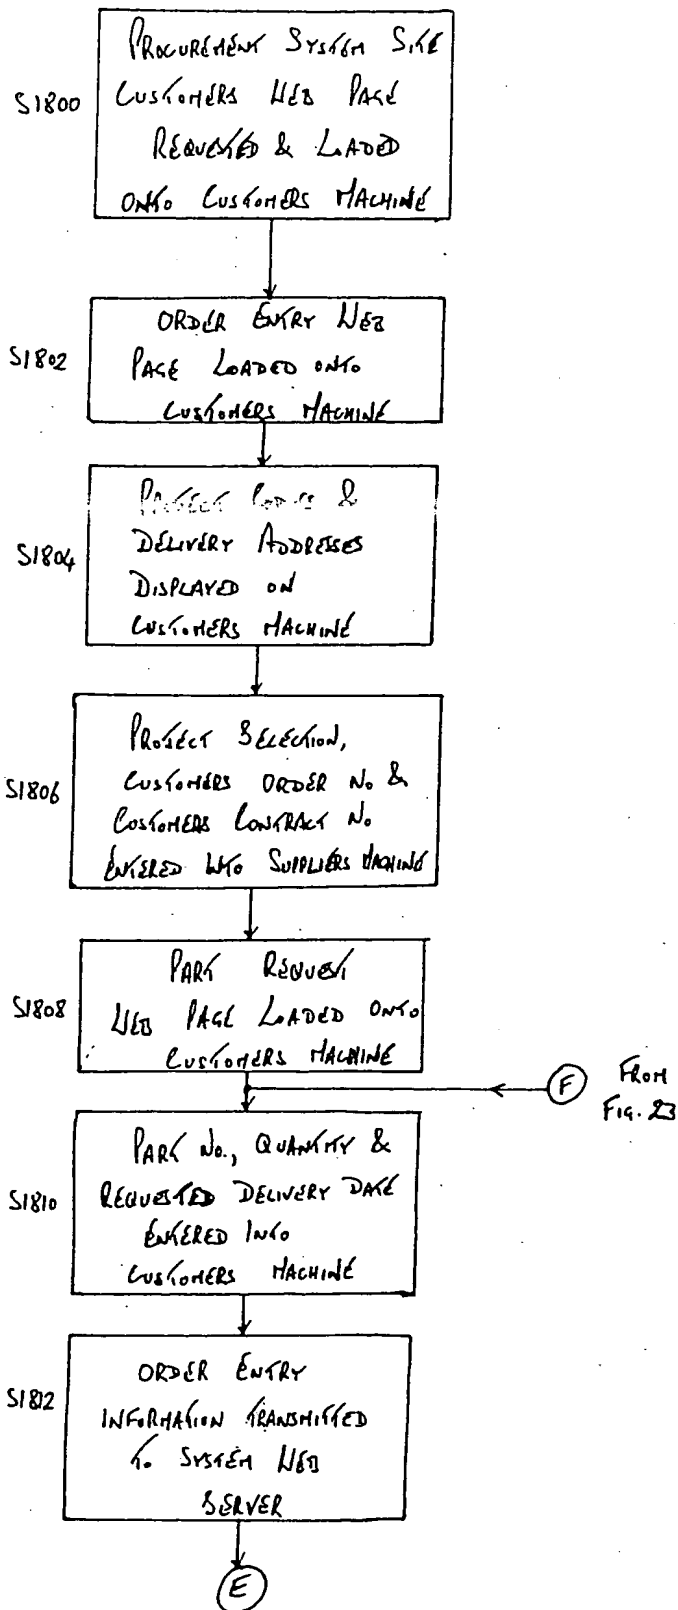 S1800
PROCUREMENT SYSTEM SITE
CUSTOMERS WEB PAGE
REQUESTED & LOADED
ONTO CUSTOMERS MACHINE
S1802
ORDER ENTRY WEB
PAGE LOADED ONTO
CUSTOMERS MACHINE
S1804
PROJECT CODES &
DELIVERY ADDRESSES
DISPLAYED ON
CUSTOMERS MACHINE
S1806
PROJECT SELECTION,
CUSTOMERS ORDER No &
CUSTOMERS CONTRACT No
ENTERED INTO SUPPLIERS MACHINE
S1808
PART REQUEST
WEB PAGE LOADED ONTO
CUSTOMERS MACHINE
F FROM
FIG. 23
S1810
PART No., QUANTITY &
REQUESTED DELIVERY DATE
ENTERED INTO
CUSTOMERS MACHINE
S1812
ORDER ENTRY
INFORMATION TRANSMITTED
TO SYSTEM WEB
SERVER
E